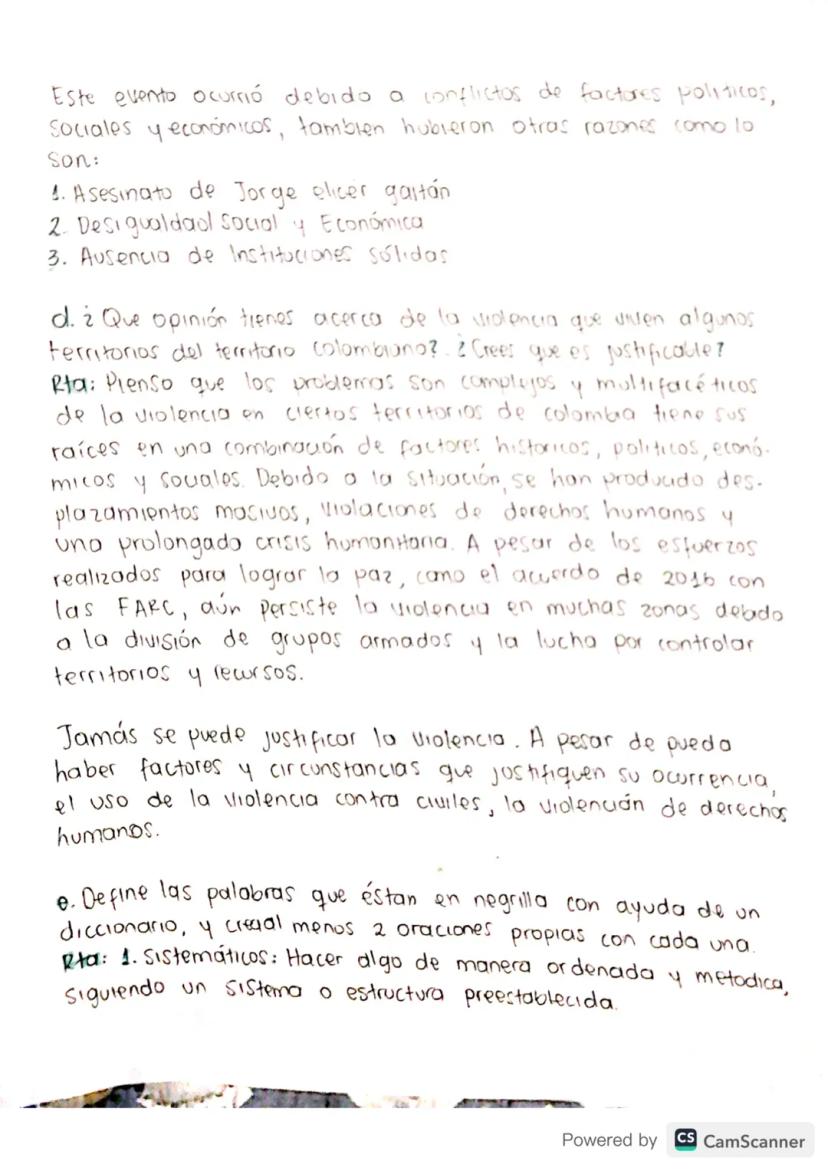 Este evento ocurrió debido a conflictos de factores políticos,
Sociales y económicos, tambien hubieron otras razones como lo
son:
1. Asesinato de Jorge elicer gaitán
2. Desigualdad Social y Económica
3. Ausencia de Instituciones sólidas
d. ¿Que opinión tienes acerca de la violencia que viven algunos
territorios del territorio colombiano? ¿Crees que es justificable?
Rta: Pienso que los problemas son complejos y multifacéticos
de la violencia en ciertos territorios de colombia tiene sus
raíces en una combinación de factores historicos, politicos, econó-
micos y sociales. Debido a la situación, se han producido des-
plazamientos masivos, violaciones de derechos humanos y
una prolongada crisis humanitaria. A pesar de los esfuerzos
realizados para lograr la paz, como el acuerdo de 2016 con
las FARC, aún persiste la violencia en muchas zonas debido
a la división de grupos armados y la lucha por controlar
territorios y recursos.
Jamás se puede justificar la violencia. A pesar de pueda
haber factores y circunstancias que justifiquen su ocurrencia,
el uso de la violencia contra civiles, la violención de derechos
humanos.
e. Define las palabras que éstan en negrilla con ayuda de un
diccionario, y crea al menos 2 oraciones propias con cada una.
Rta: 1. Sistemáticos: Hacer algo de manera ordenada y metodica,
siguiendo un sistema o estructura preestablecida.
Powered by CS CamScanner